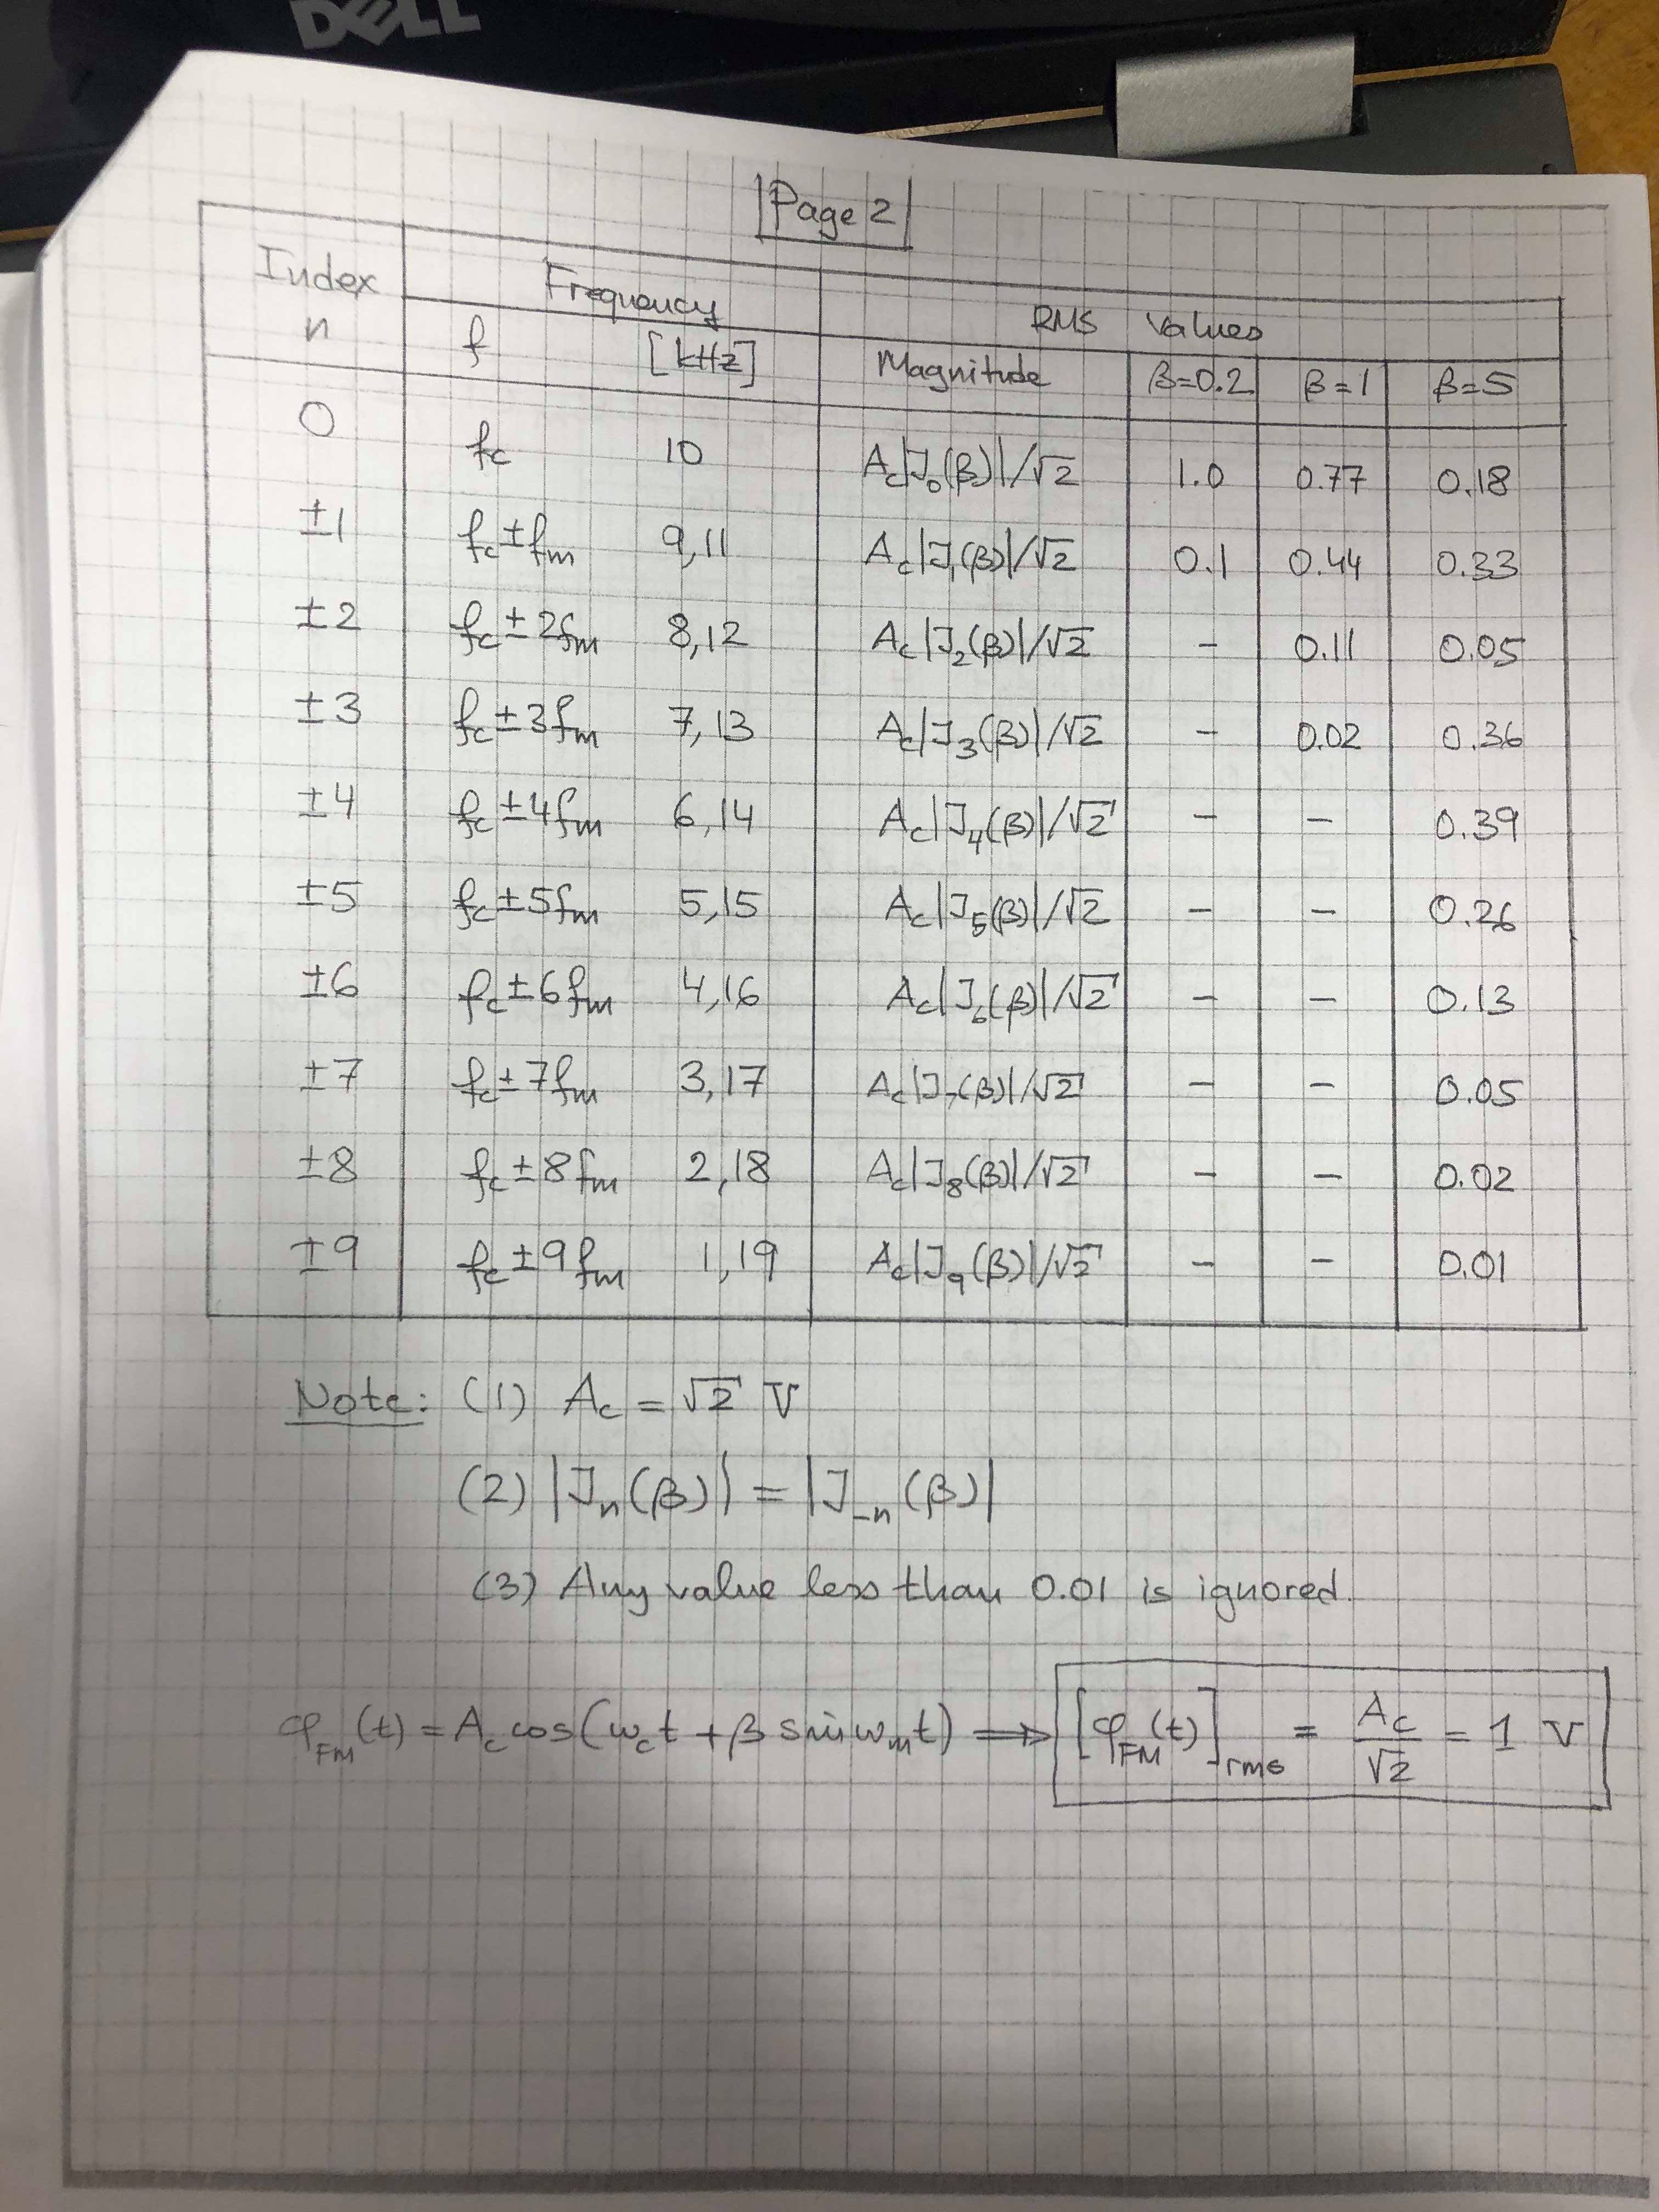 DELL
Page 2
Index n | Frequency | RMS values
f [kHz] | Magnitude | β=0.2 | β=1 | β=5
0 | fc | 10 | Ac|J₀(β)|/√2 | 1.0 | 0.77 | 0.18
±1 | fc±fm | 9,11 | Ac|J₁(β)|/√2 | 0.1 | 0.44 | 0.33
±2 | fc±2fm | 8,12 | Ac|J₂(β)|/√2 | – | 0.11 | 0.05
±3 | fc±3fm | 7,13 | Ac|J₃(β)|/√2 | – | 0.02 | 0.36
±4 | fc±4fm | 6,14 | Ac|J₄(β)|/√2 | – | – | 0.39
±5 | fc±5fm | 5,15 | Ac|J₅(β)|/√2 | – | – | 0.26
±6 | fc±6fm | 4,16 | Ac|J₆(β)|/√2 | – | – | 0.13
±7 | fc±7fm | 3,17 | Ac|J₇(β)|/√2 | – | – | 0.05
±8 | fc±8fm | 2,18 | Ac|J₈(β)|/√2 | – | – | 0.02
±9 | fc±9fm | 1,19 | Ac|J₉(β)|/√2 | – | – | 0.01
Note: (1) Ac = √2 V
(2) |Jn(β)| = |J₋n(β)|
(3) Any value less than 0.01 is ignored.
φFM(t) = Ac cos(ωct + β sin ωmt) ⟹ [φFM(t)]rms = Ac/√2 = 1 V